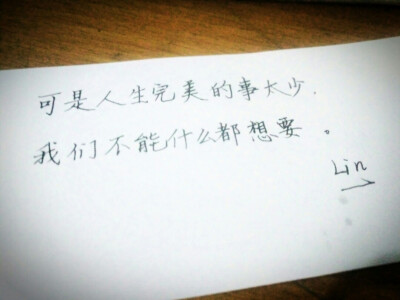 可是人生完美的事太少.
我们不能什么都想要。
Lin